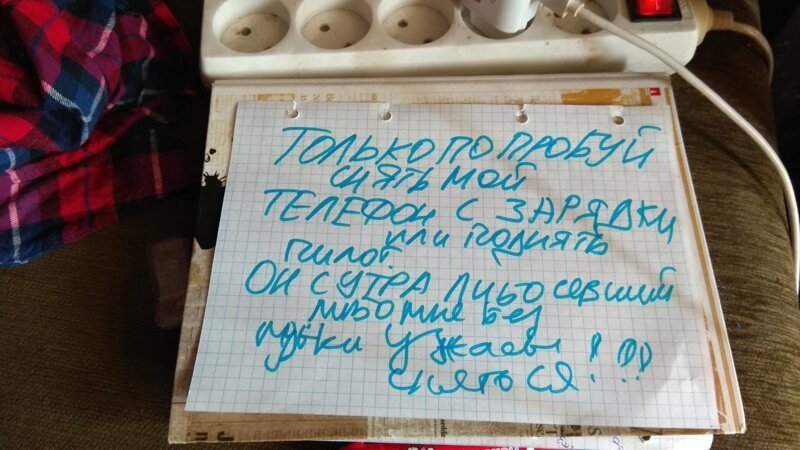 ТОЛЬКО ПОПРОБУЙ
СНЯТЬ МОЙ
ТЕЛЕФОН С ЗАРЯДКИ
ИЛИ ПОДНЯТЬ
ПИЛОТ
ОН С УТРА ЛИБО севший
либо мне без
музыки ужасы
снятся!!!!